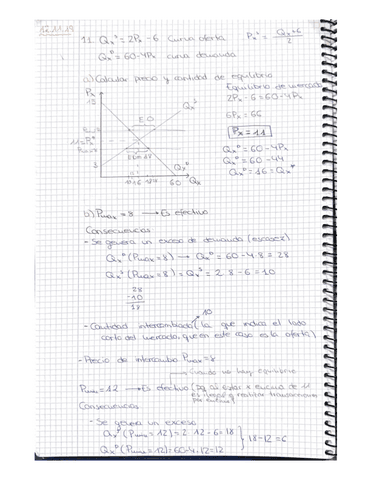 12.11.19
11. Qxˢ = 2Px - 6 curva oferta   Pxˢ = (Qx + 6)/2
Qxᴰ = 60 - 4Px curva demanda
a) Calcular precio y cantidad de equilibrio
Px   Equilibrio de mercado
15   Qxˢ   2Px - 6 = 60 - 4Px
EO   6Px = 66
11 = Px*   Px = 11
Qxᴰ = 60 - 4Px
3   Qxᴰ = 60 - 44
Qxᴰ   Qxᴰ = 16 = Qx*
60   Qx
b) Pmax = 8 → Es efectivo
Consecuencias
- Se genera un exceso de demanda (escasez)
Qxᴰ (Pmax = 8) → Qxᴰ = 60 - 4·8 = 28
Qxˢ (Pmax = 8) = Qxˢ = 2·8 - 6 = 10
28
-10
18
10
- Cantidad intercambiada (la que indica el lado
corto del mercado, que en este caso es la oferta)
- Precio de intercambio Pmax = 8
→ cuando no hay equilibrio
Pmin = 12 → Es efectivo (pq al estar x encima de 11
es ilegal realizar transacciones
por debajo)
Consecuencias
- Se genera un exceso
Qxˢ (Pmin = 12) = 2·12 - 6 = 18
18 - 12 = 6
Qxᴰ (Pmin = 12) = 60 - 4·12 = 12